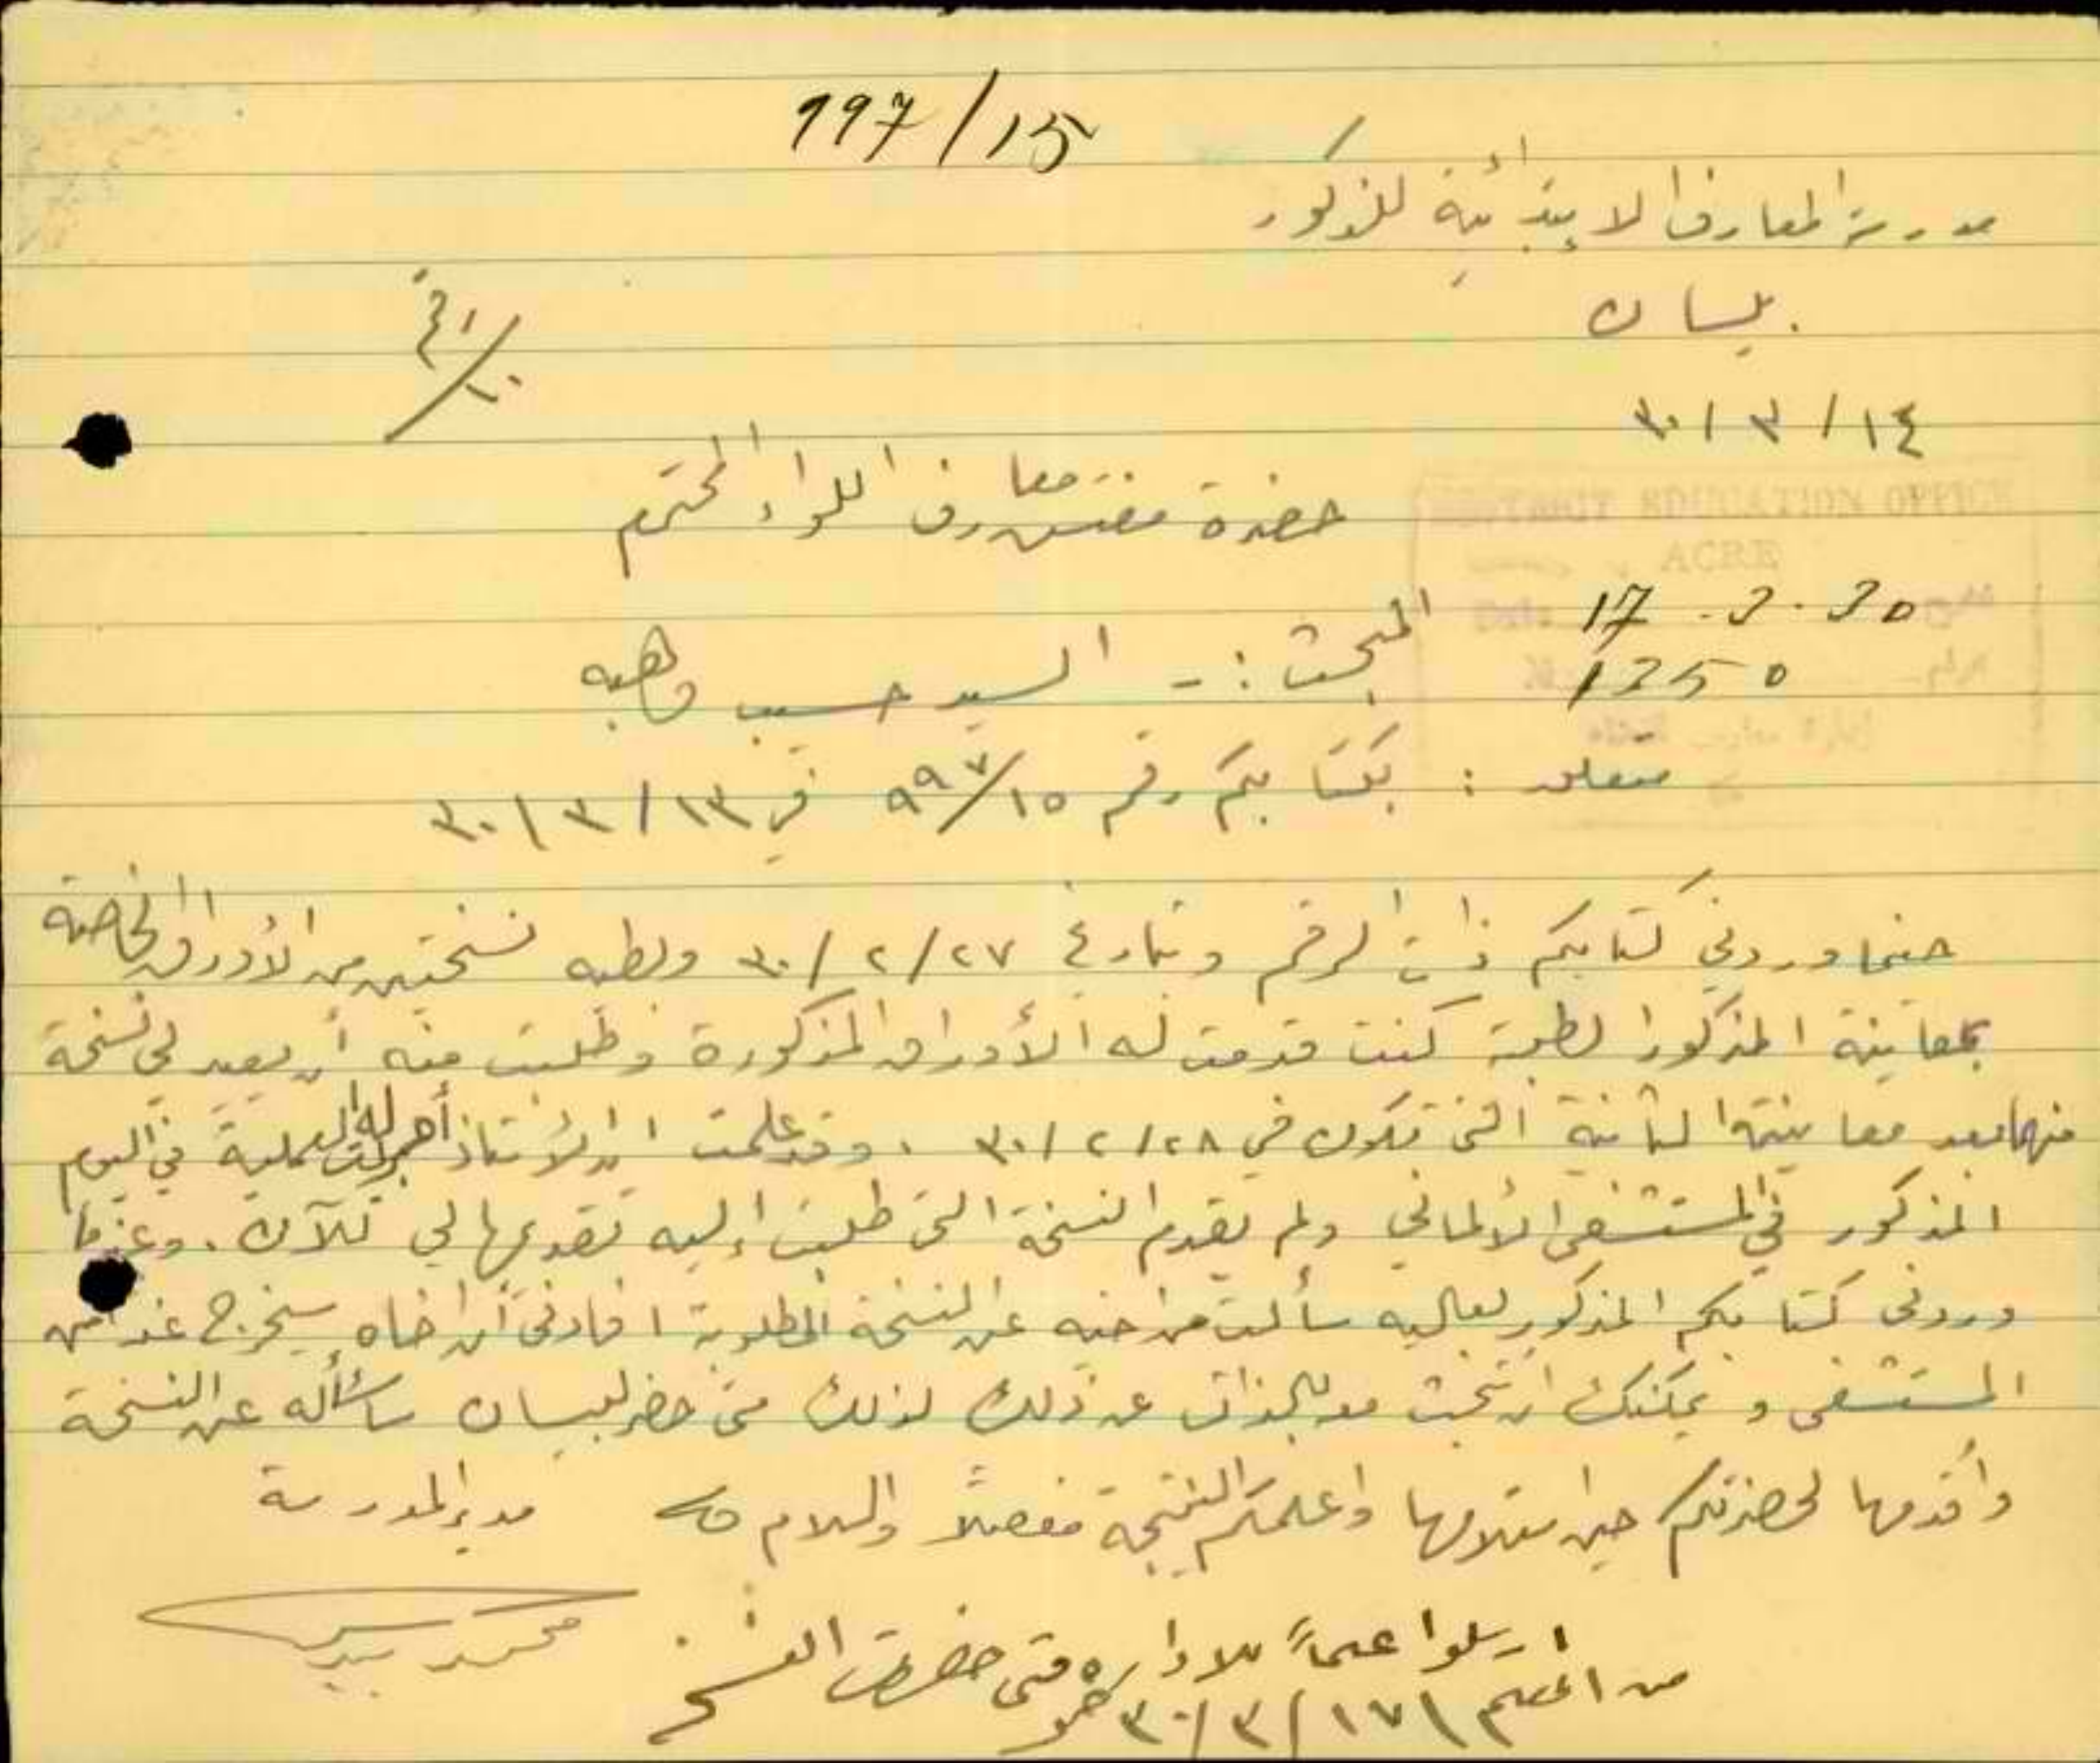 997/15
مدرسة المعارف الابتدائية للذكور
بيسان
١٤ / ٣ / ٣٠
حضرة مفتش معارف اللواء المحترم
DISTRICT EDUCATION OFFICE
ACRE
17 . 3 . 30
1350
المبحث :- السيد حسيب وهبه
متعلق : بكتابكم رقم ٩٩٧/١٥ في ١٣ / ٣ / ٣٠
حينما وردني كتابكم ذات الرقم وتاريخ ٢٧ / ٢ / ٣٠ وبطيه نسختين من الأوراق الخاصة
بمعاينة المذكور الطبية كنت قدمت له الأوراق المذكورة وطلبت منه أن يعيد لي نسخة
منها بعد معاينته الثانية التي تكون في ٢٨ / ٢ / ٣٠ . وقد علمت ان الأستاذ أجريت له العملية في اليوم
المذكور في المستشفى الألماني ولم يقدم النسخة التي طلبت إليه تقديمها لي للآن . وعندما
وردني كتابكم المذكور بعاليه سألت من اخيه عن النسخة المطلوبة افادني أن اخاه سيخرج غدا من
المستشفى و يمكنك ان تبحث معه بالذات عن ذلك لذلك متى حضر لبيسان سأسأله عن النسخة
وأقدمها لحضرتكم حين استلامها واعلمكم النتيجة مفصلاً والسلام
مدير المدرسة
محمد
ارسلوا علماً للادارة متى حضرت النسخ
١٧ / ٣ / ٣٠